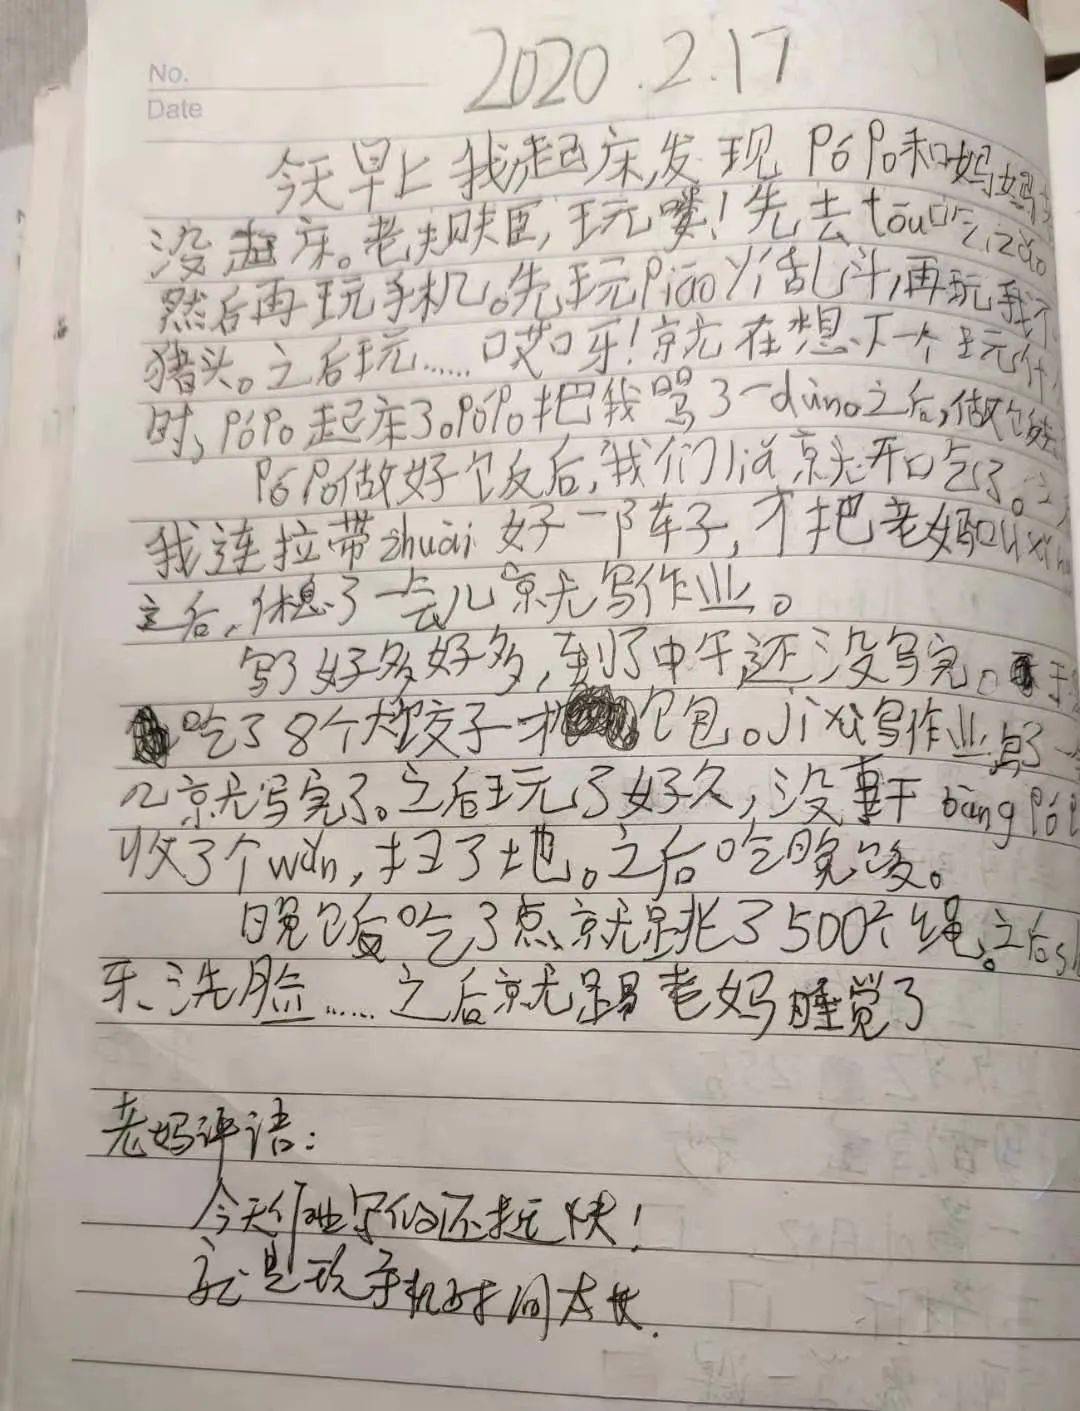 No.
Date
2020.2.17
今天早上我起床,发现PóPo和妈妈
没起床。老规矩,玩喽!先去tōu吃
然后再玩手机。先玩Piāo yí乱斗,再玩我个
猪头。之后玩……哎呀!就在想下一个玩什
时,PóPo起床了。PóPo把我骂了一dùn。之后,做饭
PóPo做好饭后,我们俩就开吃了。
我连拉带zhuài好一阵子,才把老妈叫
之后,休息了一会儿就写作业。
写了好多好多,到了中午还没写完。于
吃了8个大饺子才包。jì xù写作业,写了一
儿就写完了。之后玩了好久,没事干bāng Pó
收了个wǎn,扫了地。之后吃晚饭。
晚饭后吃了点,就跳了500个绳。之后s
牙、洗脸……之后就跟老妈睡觉了
老妈评语:
今天作业写的还挺快!
就是玩手机时间太长.